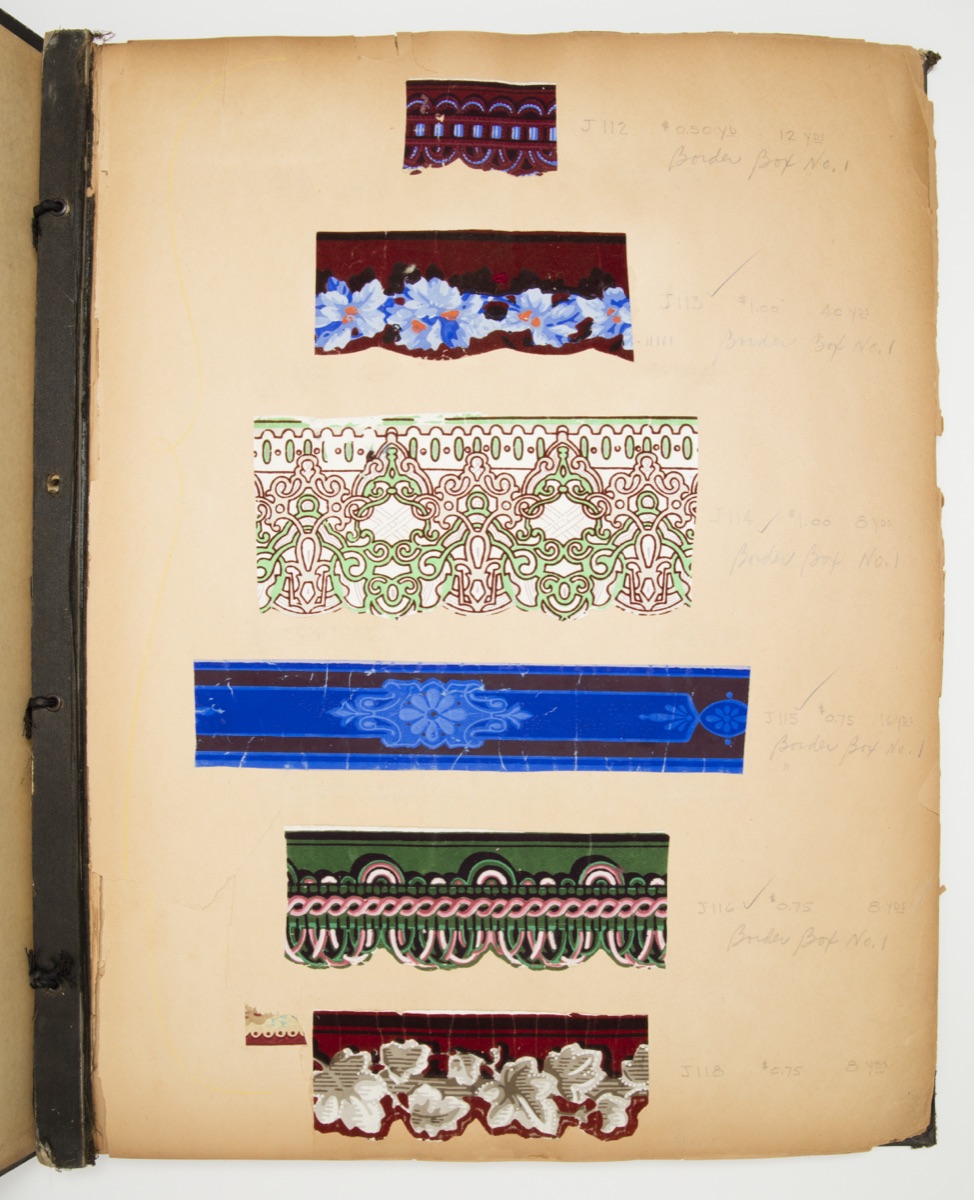 J112 $0.50 yd 12 yds
Border Box No. 1
J113 $1.00 40 yds
Border Box No. 1
J114 $1.00 8 yds
Border Box No. 1
J115 $0.75 16 yds
Border Box No. 1
J116 $0.75 8 yds
Border Box No. 1
J118 $0.75 8 yds